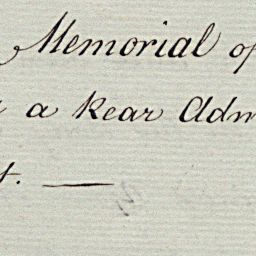 Memorial of
a Rear Adm
t. —